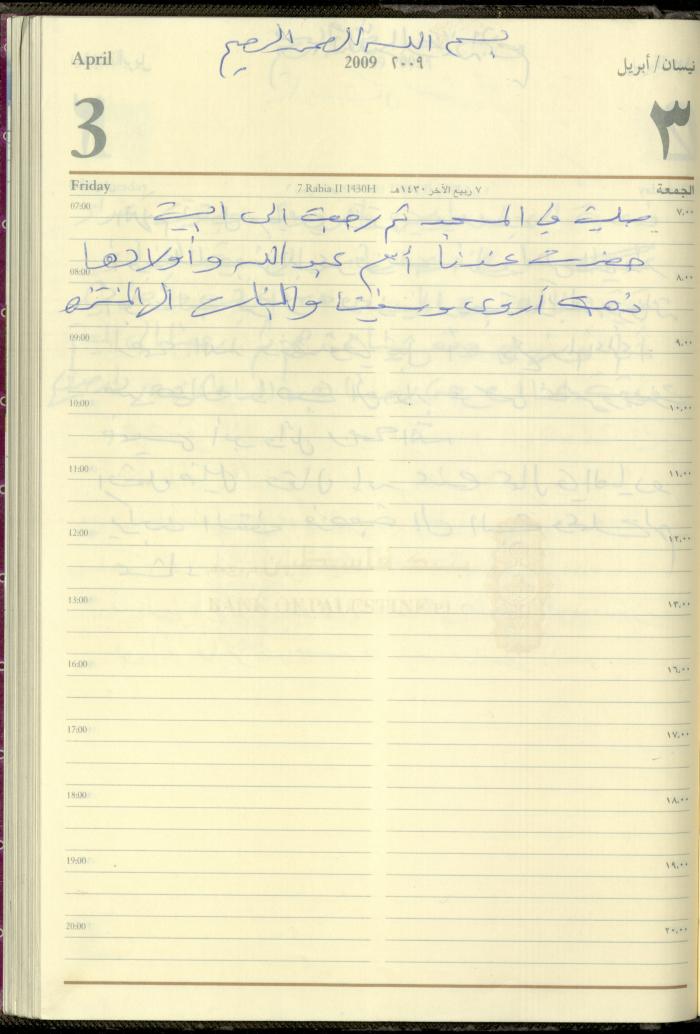 بسم الله الرحمن الرحيم
April 2009 ٢٠٠٩ نيسان/أبريل
3 ٣
Friday 7 Rabia II 1430H ٧ ربيع الآخر ١٤٣٠هـ الجمعة
07:00 ٧,٠٠
صليت في المسجد ثم رجعت الى البيت
حضرت عندنا أم عبد الله وأولادها
08:00 ٨,٠٠
ذهبت أروى و والبنات الى المنتزه
09:00 ٩,٠٠
10:00 ١٠,٠٠
11:00 ١١,٠٠
12:00 ١٢,٠٠
13:00 ١٣,٠٠
16:00 ١٦,٠٠
17:00 ١٧,٠٠
18:00 ١٨,٠٠
19:00 ١٩,٠٠
20:00 ٢٠,٠٠